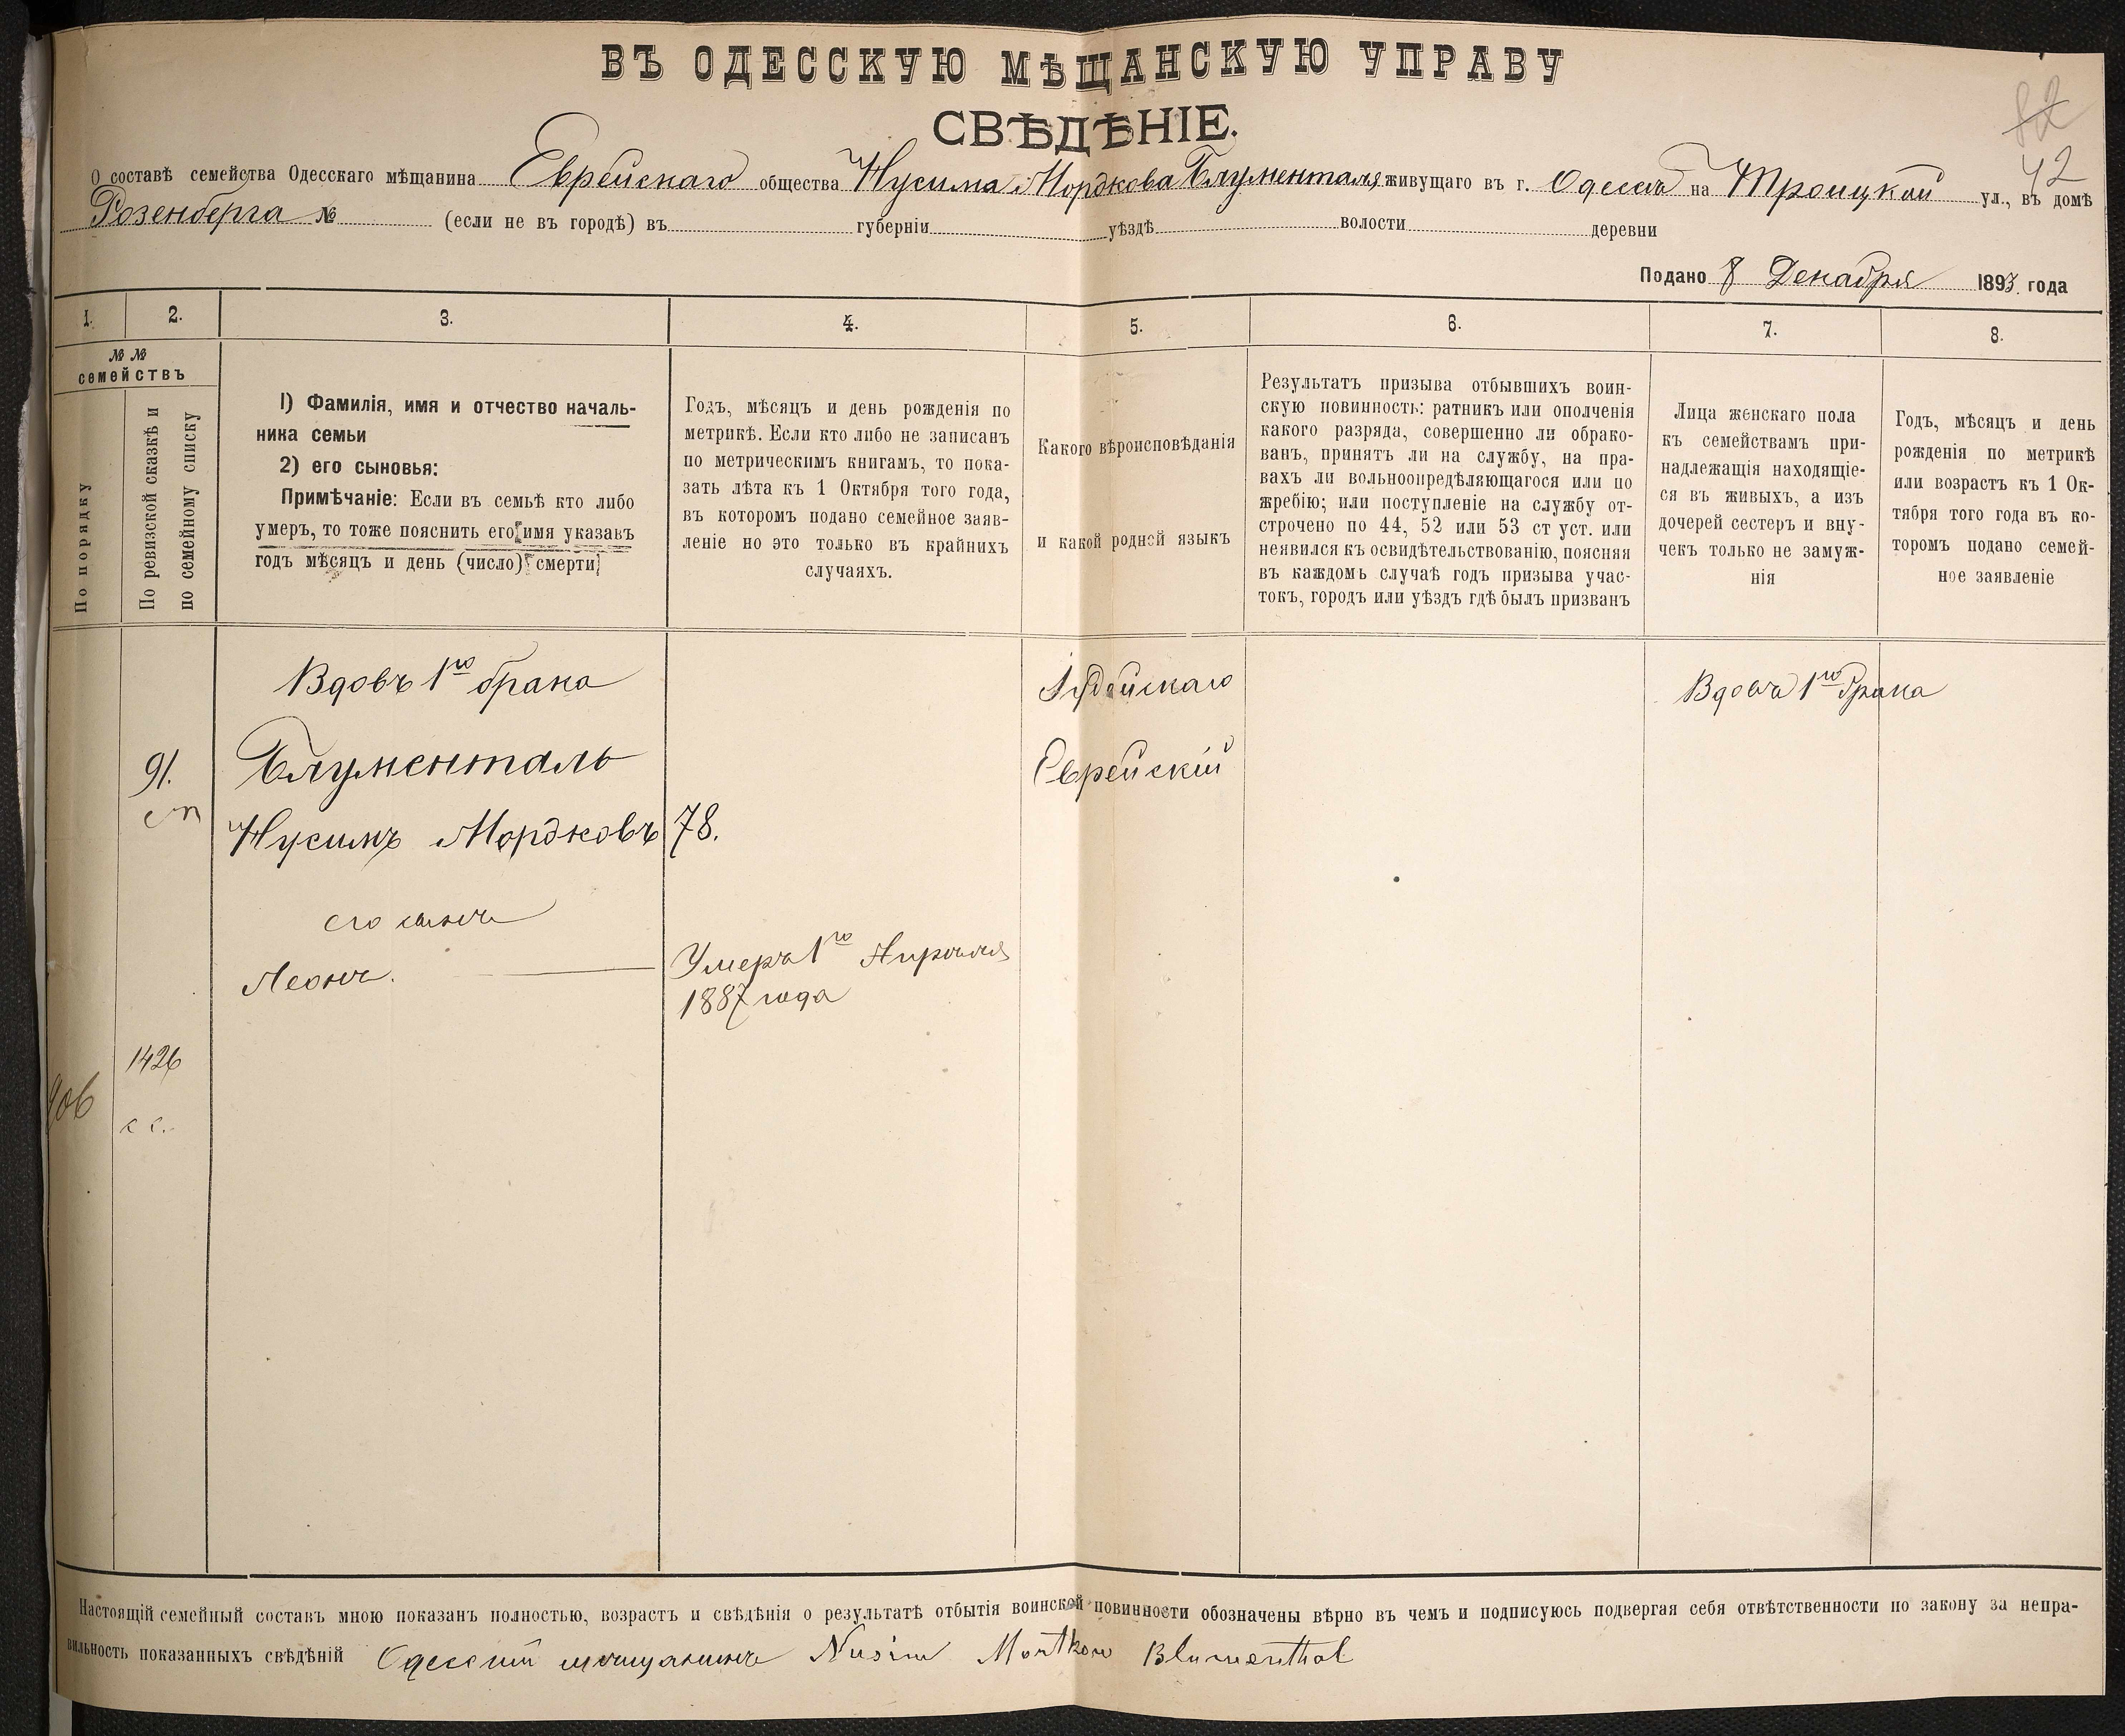 ВЪ ОДЕССКУЮ МѢЩАНСКУЮ УПРАВУ
СВѢДѢНІЕ.
82
42
О составѣ семейства Одесскаго мѣщанина Еврейскаго общества Нусима Мордкова Блументаля живущаго въ г. Одессѣ на Троицкой ул., въ домѣ
Розенберга № (если не въ городѣ) въ губерніи уѣздѣ волости деревни
Подано 8 Декабря 1893 года
1. 2. 3. 4. 5. 6. 7. 8.
№ №
семействъ
По порядку
По ревизской сказкѣ и
по семейному списку
1) Фамилія, имя и отчество началь-
ника семьи
2) его сыновья:
Примѣчаніе: Если въ семьѣ кто либо
умеръ, то тоже пояснить его имя указавъ
годъ мѣсяцъ и день (число) смерти
Годъ, мѣсяцъ и день рожденія по
метрикѣ. Если кто либо не записанъ
по метрическимъ книгамъ, то пока-
зать лѣта къ 1 Октября того года,
въ которомъ подано семейное заяв-
леніе но это только въ крайнихъ
случаяхъ.
Какого вѣроисповѣданія
и какой родной языкъ
Результатъ призыва отбывшихъ воин-
скую повинность: ратникъ или ополченія
какого разряда, совершенно ли обрако-
ванъ, принятъ ли на службу, на пра-
вахъ ли вольноопредѣляющагося или по
жребію; или поступленіе на службу от-
строчено по 44, 52 или 53 ст уст. или
неявился къ освидѣтельствованію, поясняя
въ каждомъ случаѣ годъ призыва учас-
токъ, городъ или уѣздъ гдѣ былъ призванъ
Лица женскаго пола
къ семействамъ при-
надлежащія находящіе-
ся въ живыхъ, а изъ
дочерей сестеръ и вну-
чекъ только не замуж-
нія
Годъ, мѣсяцъ и день
рожденія по метрикѣ
или возрастъ къ 1 Ок-
тября того года въ ко-
торомъ подано семей-
ное заявленіе
Вдовъ 1го брака
Іудейскаго
Вдовъ 1го брака
91.
Блументаль
Еврейскій
Нусимъ Мордковъ 78.
его сынъ
Леонъ. Умеръ 1го Апрѣля
1887 года
1426
906
с с.
Настоящій семейный составъ мною показанъ полностью, возрастъ и свѣдѣнія о результатѣ отбытія воинской повинности обозначены вѣрно въ чемъ и подписуюсь подвергая себя отвѣтственности по закону за непра-
вильность показанныхъ свѣдѣній Одесскій мѣщанинъ Nusim Mortkow Blumenthal